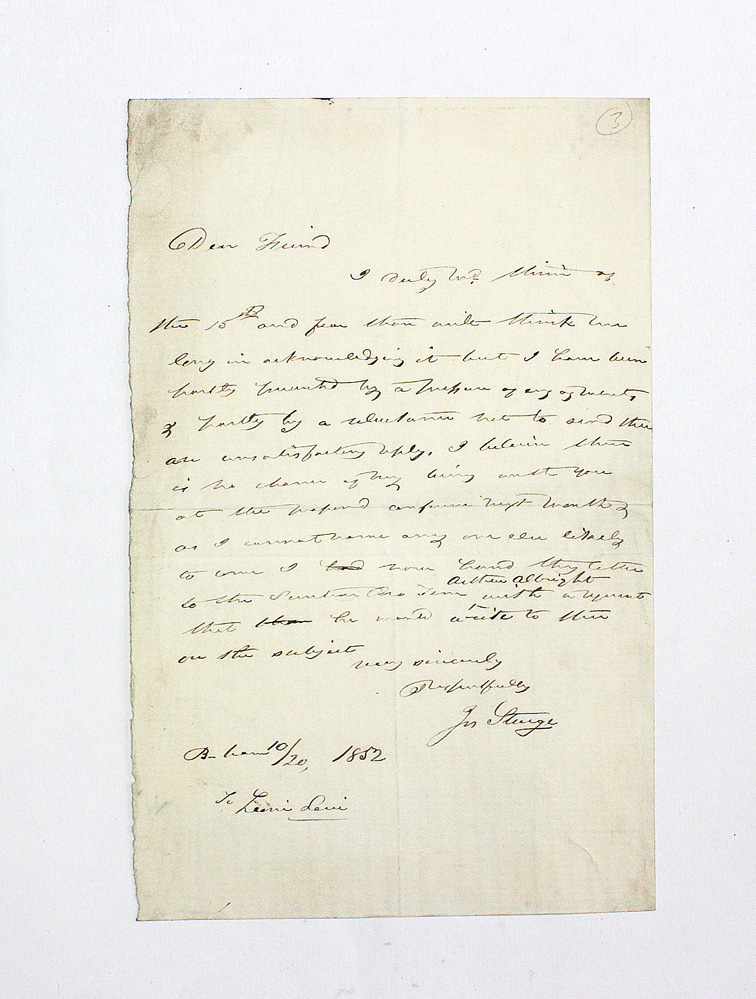 3
Dear Friend
I duly recd. thine of
the 15th and fear thou wilt think me
long in acknowledging it but I have been
partly prevented by a pressure of engagements
& partly by a reluctance not to send thee
an unsatisfactory reply. I believe there
is no chance of my being with you
at the proposed conference next month &
as I cannot name any one else likely
to come I had now hand thy letter
Arthur Albright
to the Secretary Pro Tem with a request
that he would write to thee
on the subject
very sincerely
Respectfully
Jos Sturge
B-ham 10/20, 1852
To Leoni Levi